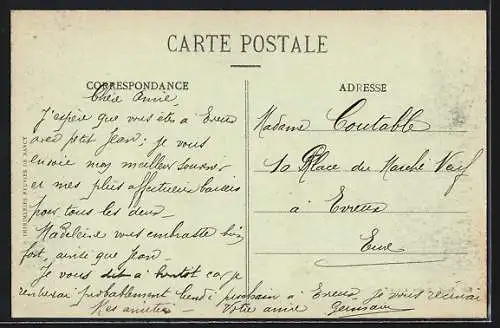 CARTE POSTALE
CORRESPONDANCE
Chère Amie,
J'espère que vous êtes à Evreux
avec petit Jean; je vous
envoie mes meilleurs souvenirs
et mes plus affectueux baisers
pour tous les deux_
Madeleine vous embrasse bien
fort, ainsi que Jean_
Je vous dit à car je
probablement lundi prochain à Evreux_ je vous
Mes amitiés_ Votre amie Germaine
ADRESSE
Madame Coutable
10 Place du Marché Neuf
à Evreux
Eure
IMPRIMERIES RÉUNIES DE NANCY